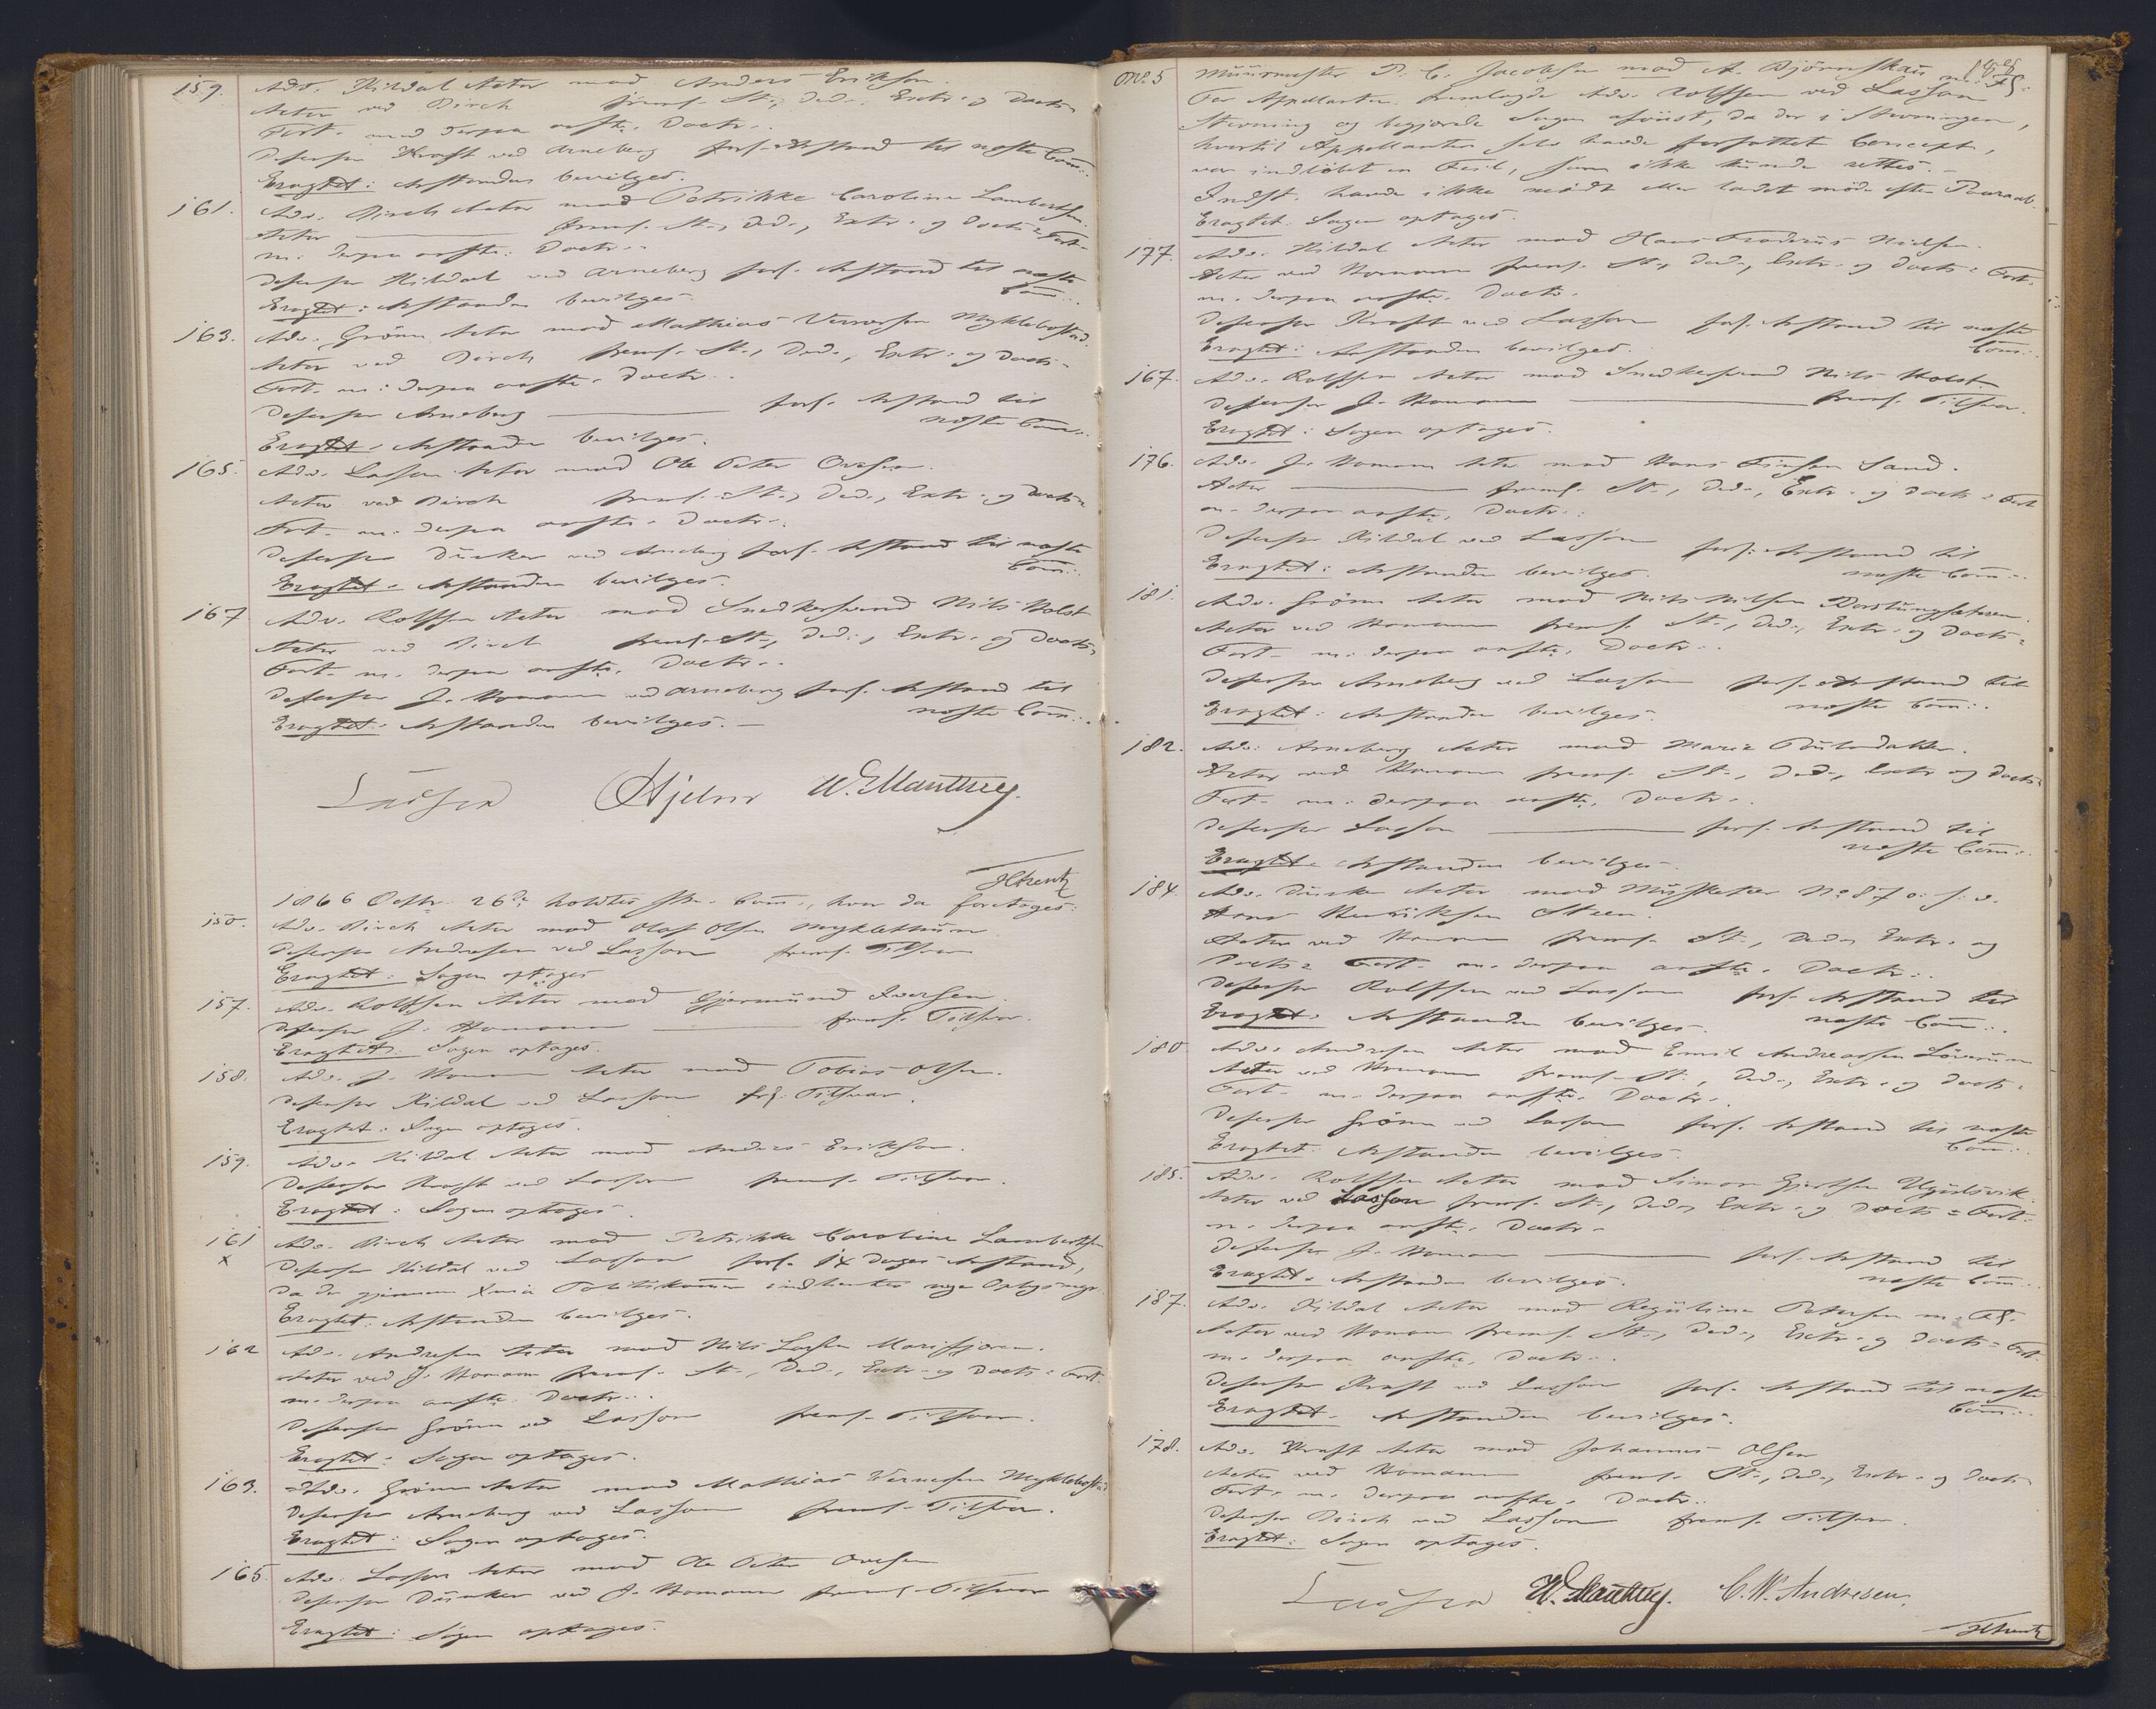 159. Adv. Kildal Actor mod Anders Erikson.
Actor ved Birch freml. St., Ded., Extr. og Doctr.
Fort. med derpaa anfte. Doctr.
Defensor Kraft ved Arneberg forl. Anstand til næste Com.:
Eragtet: Anstanden bevilges.
161. Adv. Birch Actor mod Petrikke Caroline Lambertsen.
Actor freml. St., Ded., Extr. og Doctr. Fort.
m. derpaa anfte. Doctr.
Defensor Kildal ved Arneberg forl. Anstand til næste
Com.:
Eragtet: Anstanden bevilges.
163. Adv. Grönn Actor mod Mathias Verversen Myklebostad.
Actor ved Birch freml. St., Ded., Extr. og Doctr.
Fort. m. derpaa anfte. Doctr.
Defensor Arneberg forl. Anstand til
næste Com.:
Eragtet: Anstanden bevilges.
165. Adv. Lasson Actor mod Ole Peter Ovesen.
Actor ved Birch freml. St., Ded., Extr. og Doctr.
Fort. m. derpaa anfte. Doctr.
Defensor Dunker ved Arneberg forl. Anstand til næste
Com.:
Eragtet: Anstanden bevilges.
167 Adv. Rolffsen Actor mod Snedkersvend Nils Holst
Actor ved Birch freml. St., Ded., Extr. og Doctr.
Fort. m. derpaa anfte. Doctr.
Defensor J. Homann ved Arneberg forl. Anstand til
næste Com.:
Eragtet: Anstanden bevilges.
Lasson Hjelm W. E. Manthey.
1866 Octbr. 26de holdtes Com., hvor da foretoges:
150. Adv. Birch Actor mod Olaf Olsen Myklethun
Defensor Andresen ved Lasson freml. Tilsvar
Eragtet: Sagen optages
157. Adv. Rolffsen Actor mod Gjermund Iversen
Defensor J. Homann freml. Tilsvar.
Eragtet: Sagen optages.
158. Adv. J. Homann Actor mod Tobias Olsen.
Defensor Kildal ved Lasson frl. Tilsvar.
Eragtet: Sagen optages.
159. Adv. Kildal Actor mod Anders Erikson.
Defensor Kraft ved Lasson freml. Tilsvar.
Eragtet: Sagen optages.
161 Adv. Birch Actor mod Petrikke Caroline Lambertsen
x Defensor Kildal ved Lasson forl. 14 Dages Anstand,
da der gjennem Politikammer indhentes nye Oplysngr.
Eragtet: Anstanden bevilges.
162 Adv. Andresen Actor mod Nils Larsen
Actor ved J. Homann freml. St., Ded., Extr. og Doctr. Fort.
m. derpaa anfte. Doctr.
Defensor Grönn ved Lasson freml. Tilsvar.
Eragtet: Sagen optages.
163. Adv. Grönn Actor mod Mathias Versersen Myklebostad
Defensor Arneberg ved Lasson freml. Tilsvar.
Eragtet: Sagen optages.
165. Adv. Lasson Actor mod Ole Peter Ovesen
Defensor Dunker ved J. Homann freml. Tilsvar
Eragtet: Sagen optages.
No. 5 Muurmester P. C. Jacobsen mod A. Björnskau m. Fl.
For Appellanten fremlagde Adv. Rolffsen ved Lasson
Stevning og begjærede Sagen afviist, da der i Stevningen,
hvortil Appellanten selv havde forfattet Concept,
var indlöbet en Feil, som ikke kunde rettes.
Indst. havde ikke mödt eller ladet möde efter Paaraab.
Eragtet: Sagen optages.
177. Adv. Kildal Actor mod Hans Fredriis Nielsen.
Actor ved Homann freml. St., Ded., Extr. og Doctr. Fort.
m. derpaa anfte. Doctr.
Defensor Kraft ved Lasson forl. Anstand til næste
Com.:
Eragtet: Anstanden bevilges.
167. Adv. Rolffsen Actor mod Snedkersvend Nils Holst
Defensor J. Homann freml. Tilsvar.
Eragtet: Sagen optages.
176. Adv. J. Homann Actor mod Hans Sand.
Actor freml. St., Ded., Extr. og Doctr. Fort
m. derpaa anfte. Doctr.
Defensor Kildal ved Lasson forl. Anstand til
næste Com.:
Eragtet: Anstanden bevilges.
181. Adv. Grönn Actor mod Nils Nilsen
Actor ved Homann freml. St., Ded., Extr. og Doctr.
Fort. m. derpaa anfte. Doctr.
Defensor Arneberg ved Lasson forl. Anstand til
næste Com.:
Eragtet: Anstanden bevilges.
182. Adv. Arneberg Actor mod Marie
Actor ved Homann freml. St., Ded., Extr. og Doctr.
Fort. m. derpaa anfte. Doctr.
Defensor Lasson forl. Anstand til
næste Com.:
Eragtet: Anstanden bevilges.
184. Adv. Dunker Actor mod Musketeer No. 87
Hans Henriksen Steen.
Actor ved Homann freml. St., Ded., Extr. og
Doctr. Fort. m. derpaa anfte. Doctr.
Defensor Rolffsen ved Lasson forl. Anstand til
næste Com.:
Eragtet: Anstanden bevilges.
180 Adv. Andresen Actor mod Emil Andreassen
Actor ved Homann freml. St., Ded., Extr. og Doctr.
Fort. m. derpaa anfte. Doctr.
Defensor Grönn ved Lasson forl. Anstand til næste
Com.:
Eragtet: Anstanden bevilges.
185. Adv. Rolffsen Actor mod Simon Gjertsen
Actor ved Lasson freml. St., Ded., Extr. og Doctr. Fort.
m. derpaa anfte. Doctr.
Defensor J. Homann forl. Anstand til
næste Com.:
Eragtet: Anstanden bevilges.
187. Adv. Kildal Actor mod Reguline Petersen m. Fl.
Actor ved Homann freml. St., Ded., Extr. og Doctr. Fort.
m. derpaa anfte. Doctr.
Defensor Kraft ved Lasson forl. Anstand til næste
Com.:
Eragtet: Anstanden bevilges.
178. Adv. Kraft Actor mod Johannes Olsen
Actor ved Homann freml. St., Ded., Extr. og Doctr.
Fort. m. derpaa anfte. Doctr.
Defensor Birch ved Lasson freml. Tilsvar.
Eragtet: Sagen optages.
Lasson W. Manthey. C. W. Andresen.